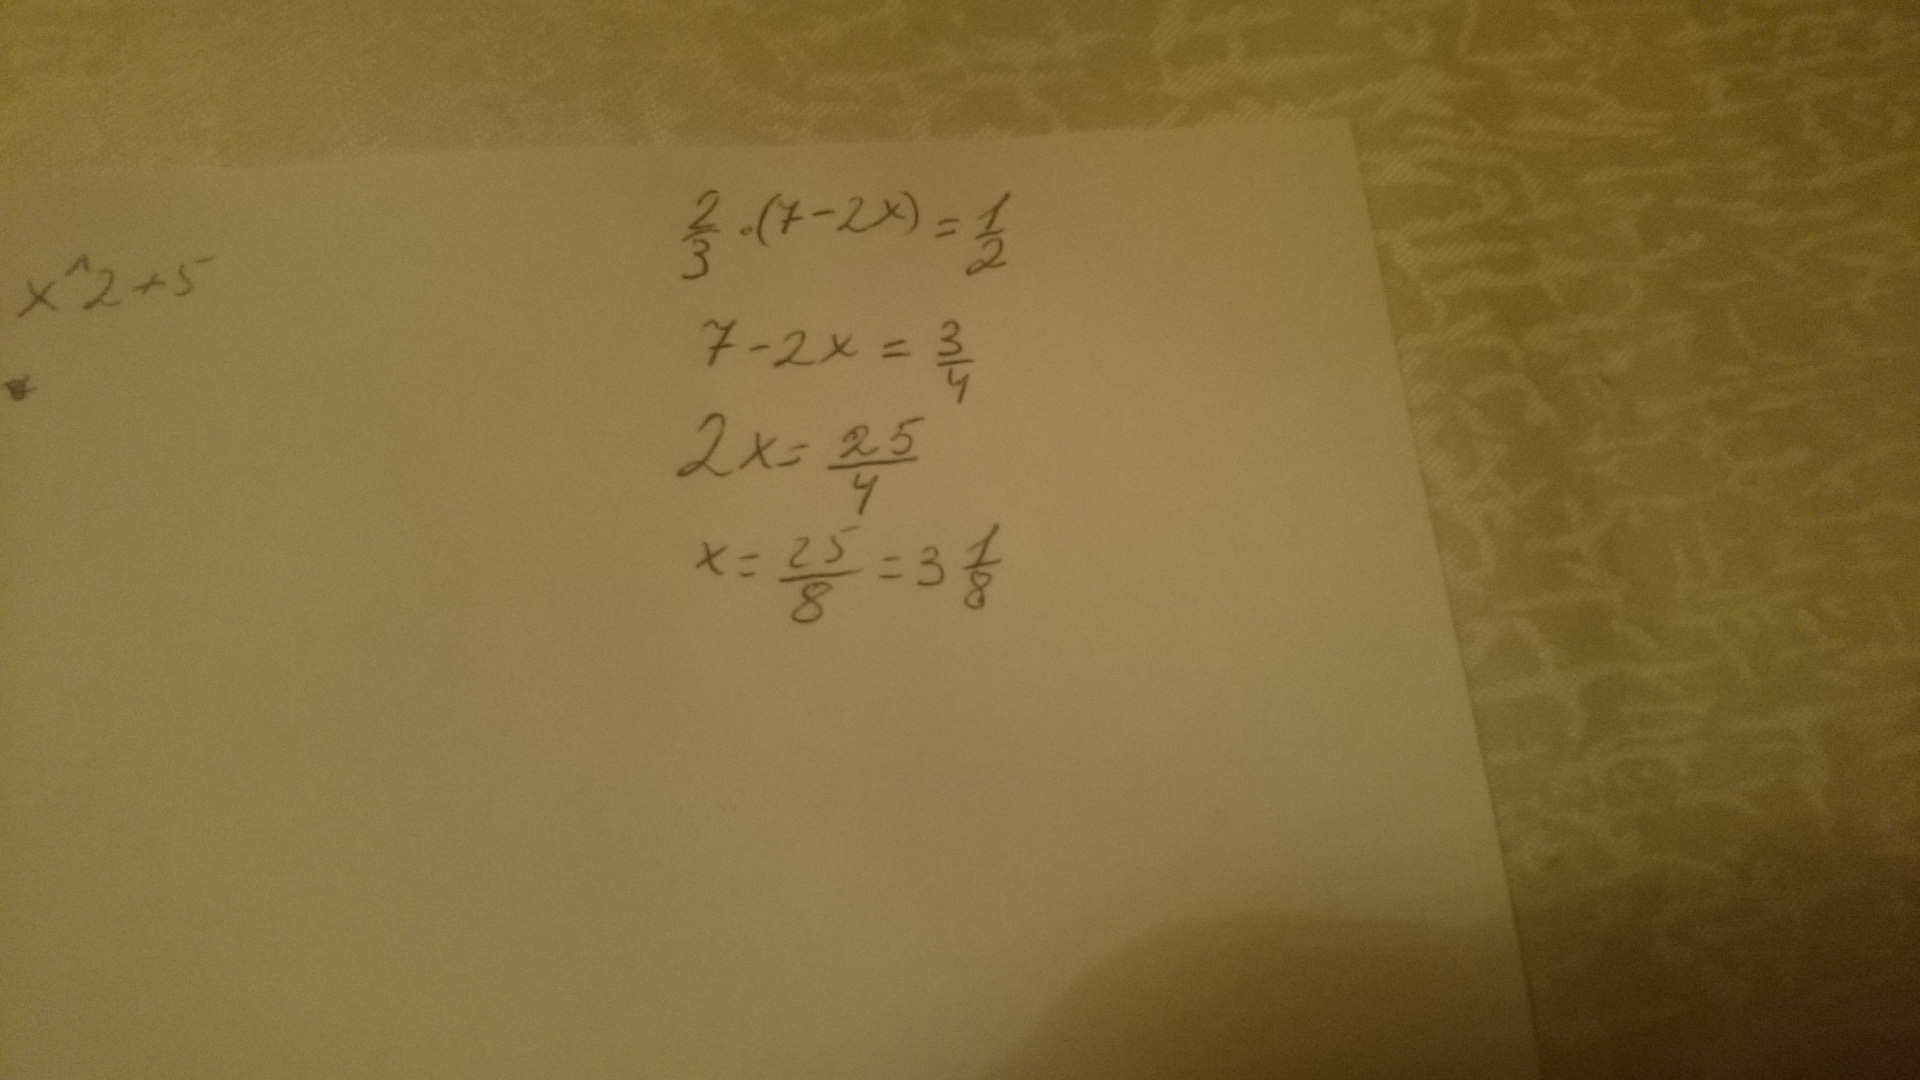 x^2+5
2/3 ·(7-2x)=1/2
7-2x=3/4
2x=25/4
x=25/8=3 1/8